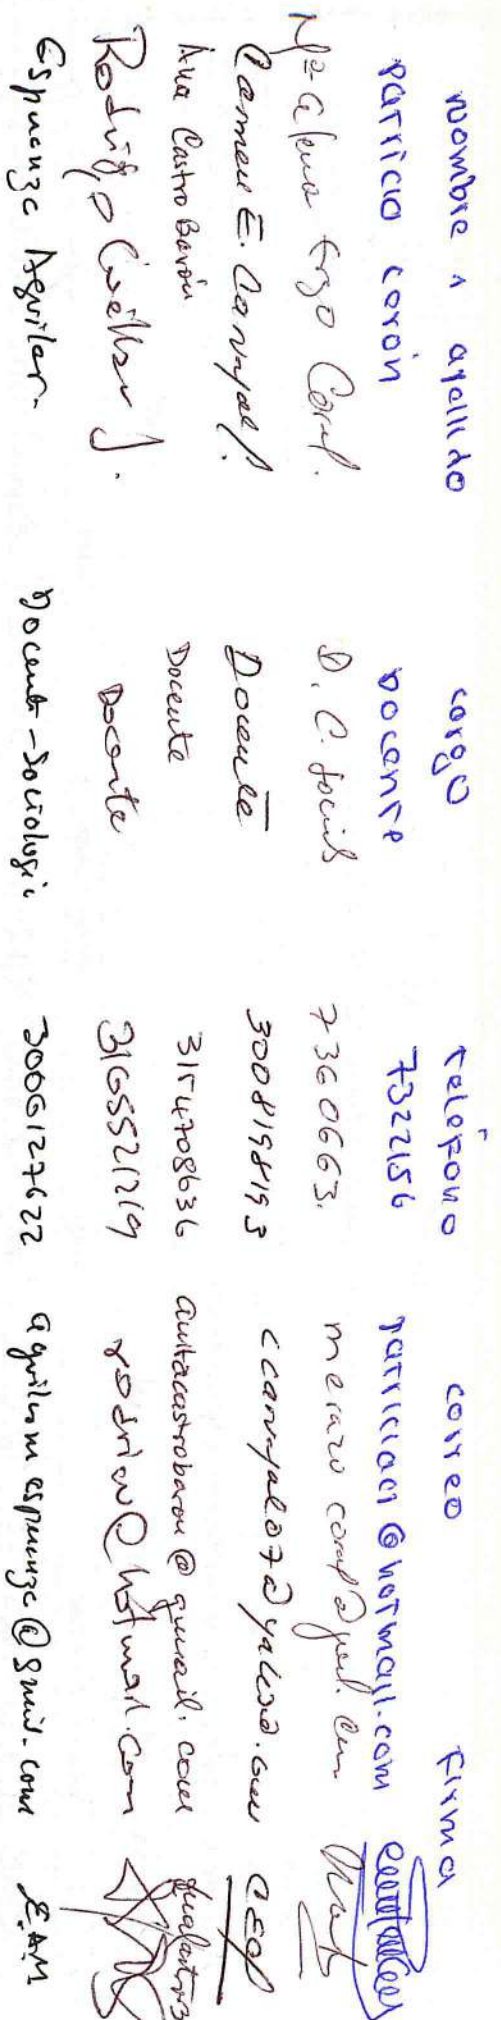 nombre y apellido cargo Teléfono correo Firma
Patricia Cerón Docente 7322156 patriciaci@hotmail.com
Mª Elena Erazo Coral. D. C. Socials 7360663.
Carmen E. Carvajal P. Docente 3008198193 ccarvajal07@yahoo.com CECP
Ana Castro Barón Docente 3154708636 anitacastrobaron@gmail.com
Rodrigo Cuéllar J. Docente 3165521219 rodricu@hotmail.com
Esperanza Aguilar. Docente-Sociología 3006127622 aguilarmesperanza@gmail.com E.A.M